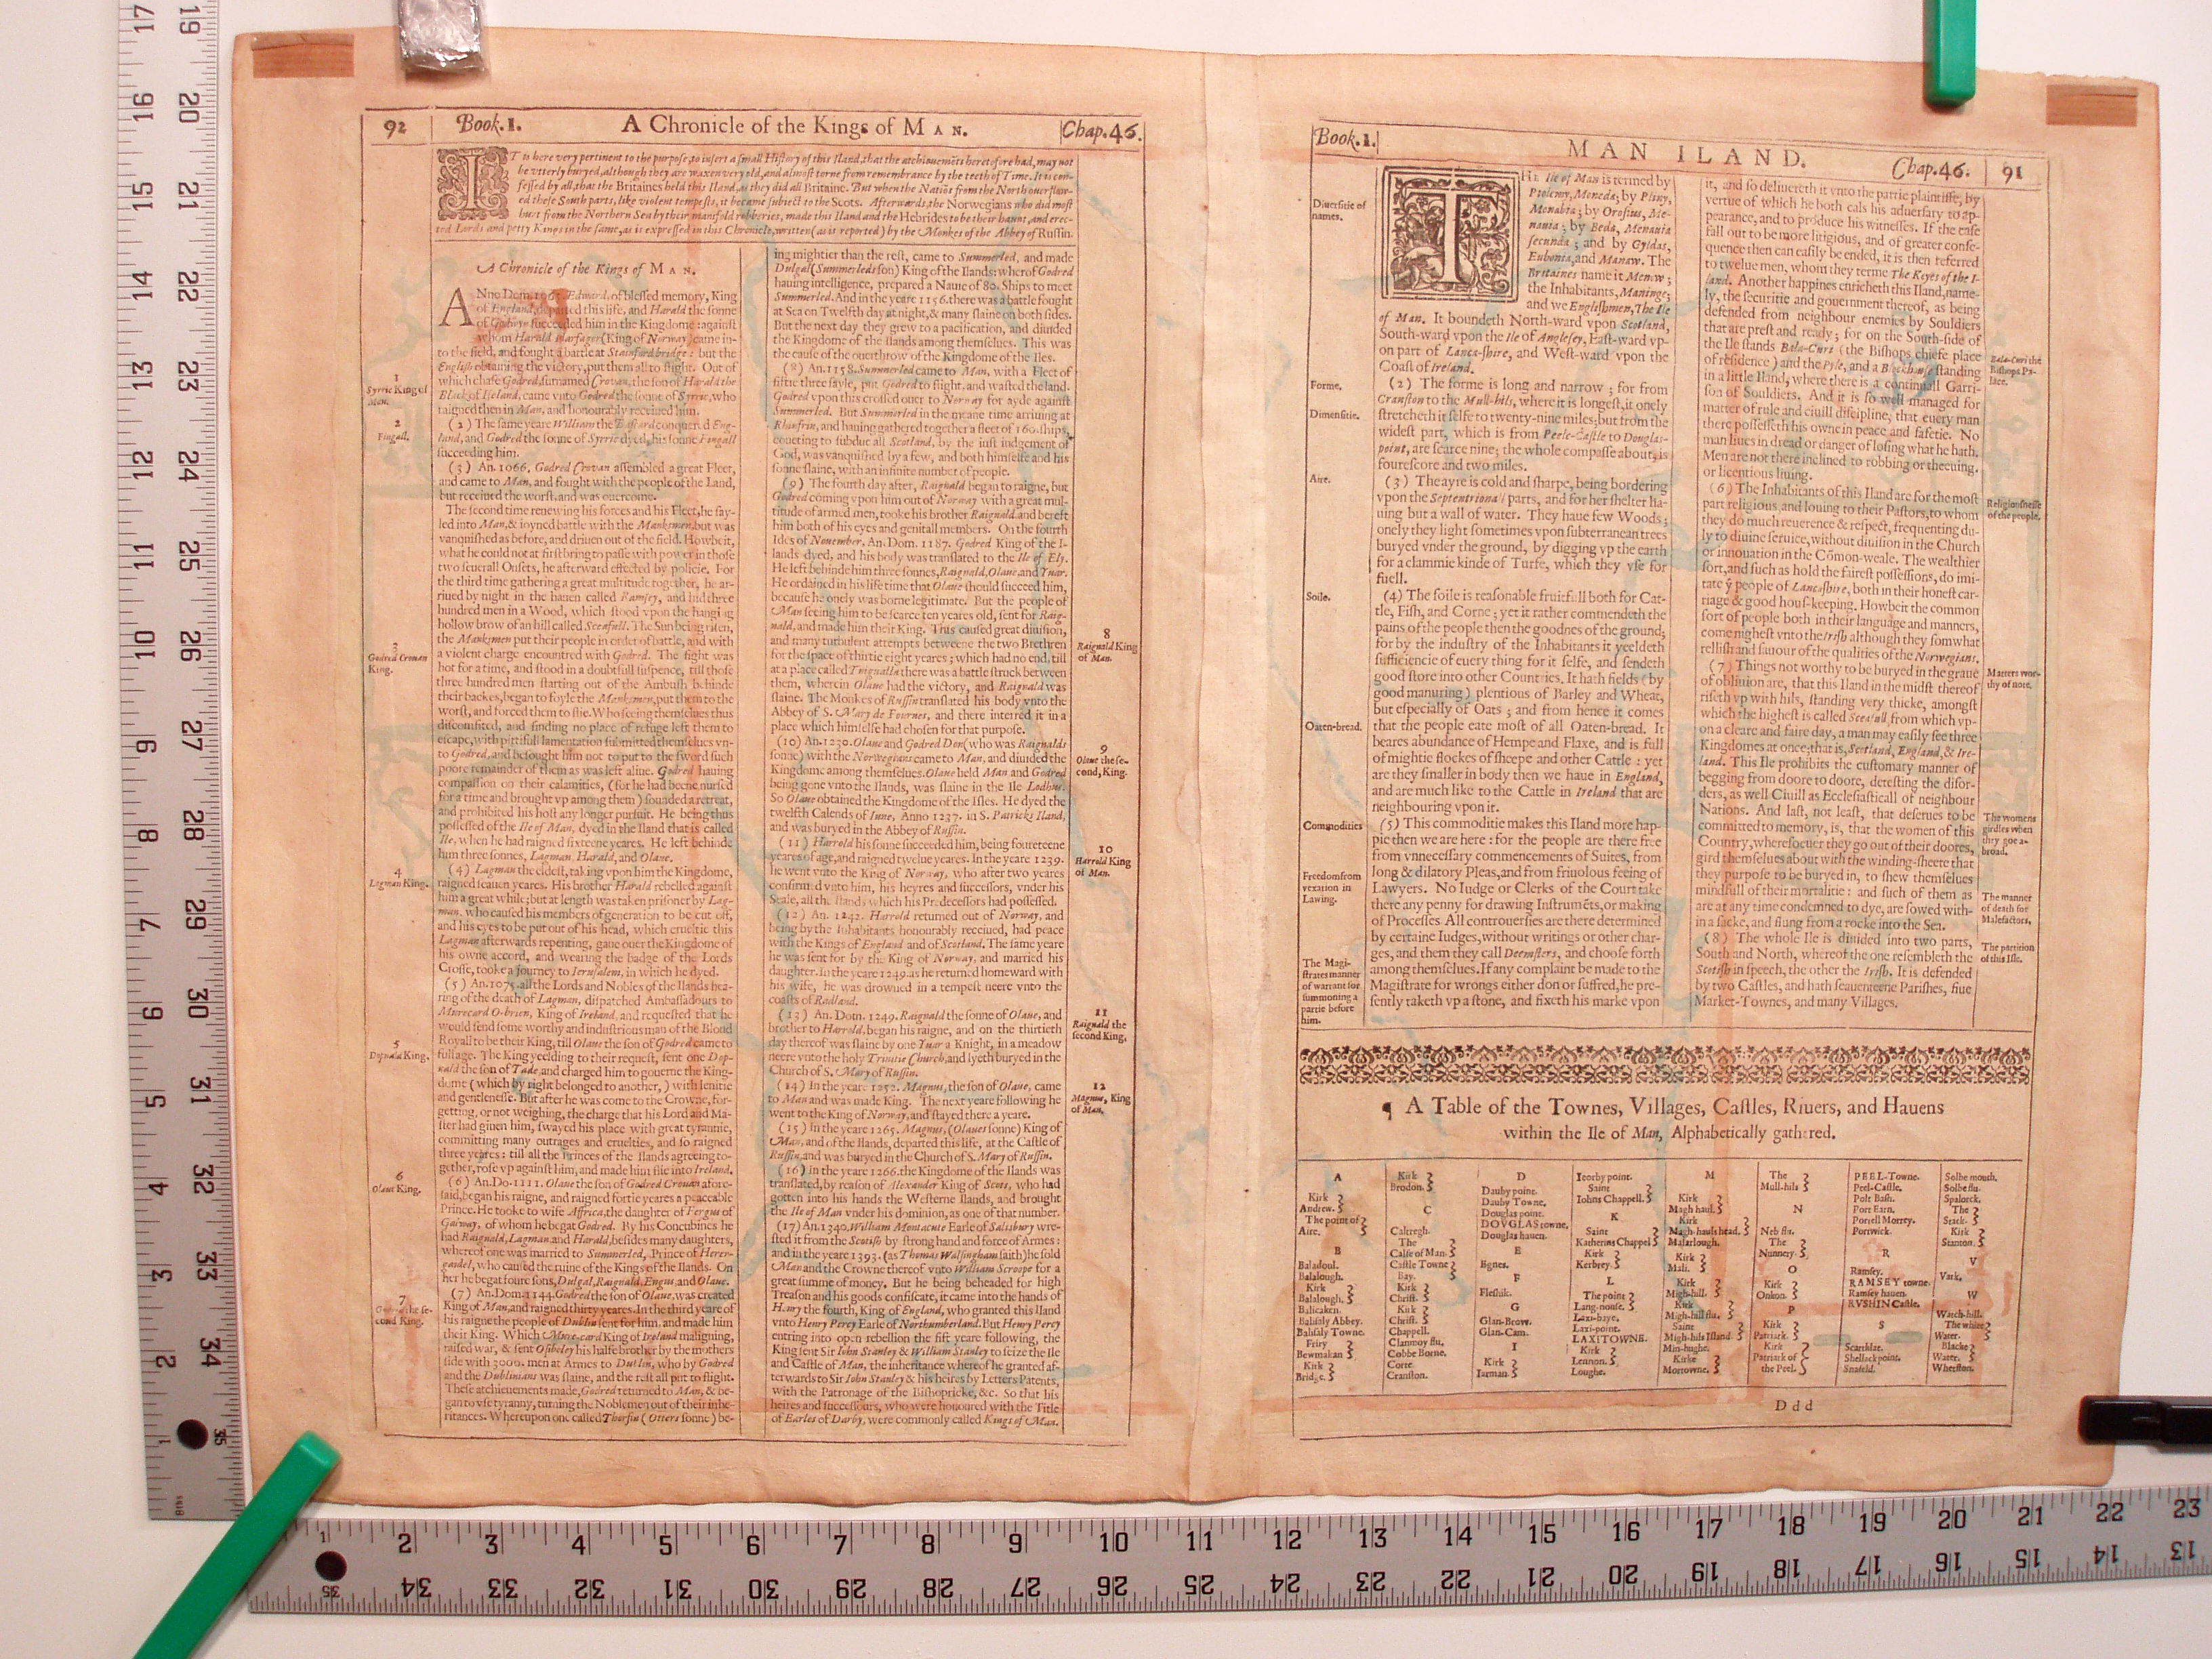 92 Book.1. A Chronicle of the Kings of MAN. Chap.46.
IT is here very pertinent to the purpose, to insert a small History of this Iland, that the atchieuemēts heretofore had, may not
be vtterly buryed, although they are waxen very old, and almost torne from remembrance by the teeth of Time. It is con-
fessed by all, that the Britaines held this Iland, as they did all Britaine. But when the Natiōs from the North ouerflow-
ed these South parts, like violent tempests, it became subiect to the Scots. Afterwards, the Norwegians who did most
hurt from the Northern Sea by their manifold robberies, made this Iland and the Hebrides to be their haunt, and erec-
ted Lords and petty Kings in the same, as is expressed in this Chronicle, written (as is reported) by the Monkes of the Abbey of Russin.
A Chronicle of the Kings of MAN.
ANno Dom. Edward, of blessed memory, King
of England, departed this life, and Harald the sonne
of Godwyn succeeded him in the Kingdome: against
whom Harald Harfager (King of Norway) came in-
to the field, and fought a battle at Stainfordbridge: but the
English obtaining the victory, put them all to flight. Out of
which chase Godred, surnamed Crovan, the son of Harald the
Black of Iseland, came vnto Godred the sonne of Syrric, who
raigned then in Man, and honourably received him.
1
Syrric King of
Man.
(2) The same yeare William the Bastard conquered Eng-
land, and Godred the sonne of Syrric dyed, his sonne Fingall
succeeding him.
2
Fingall.
(3) An. 1066. Godred Crovan assembled a great Fleet,
and came to Man, and fought with the people of the Land,
but received the worst, and was ouercome.
The second time renewing his forces and his Fleet, he say-
led into Man, & ioyned battle with the Manksmen, but was
vanquished as before, and driuen out of the field. Howbeit,
what he could not at first bring to passe with power in those
two seuerall Onsets, he afterward effected by policie. For
the third time gathering a great multitude together, he ar-
riued by night in the hauen called Ramsey, and hid three
hundred men in a Wood, which stood vpon the hanging
hollow brow of an hill called Sceafull. The Sun being risen,
the Manksmen put their people in order of battle, and with
a violent charge encountred with Godred. The fight was
hot for a time, and stood in a doubtfull suspence, till those
three hundred men starting out of the Ambush behinde
their backes, began to foyle the Manksmen, put them to the
worst, and forced them to flie. Who seeing themselues thus
discomfited, and finding no place of refuge left them to
escape, with pittifull lamentation submitted themselues vn-
to Godred, and besought him not to put to the sword such
poore remainder of them as was left aliue. Godred hauing
compassion on their calamities, (for he had beene nursed
for a time and brought vp among them) sounded a retreat,
and prohibited his host any longer pursuit. He being thus
possessed of the Ile of Man, dyed in the Iland that is called
Ile, when he had raigned sixteene yeares. He left behinde
him three sonnes, Lagman, Harald, and Olaue.
3
Godred Crouan
King.
(4) Lagman the eldest, taking vpon him the Kingdome,
raigned seauen yeares. His brother Harald rebelled against
him a great while; but at length was taken prisoner by Lag-
man, who caused his members of generation to be cut off,
and his eyes to be put out of his head, which crueltie this
Lagman afterwards repenting, gaue ouer the Kingdome of
his owne accord, and wearing the badge of the Lords
Crosse, tooke a journey to Ierusalem, in which he dyed.
4
Lagman King.
(5) An. 1075. all the Lords and Nobles of the Ilands hea-
ring of the death of Lagman, dispatched Ambassadours to
Murecard O-brien, King of Ireland, and requested that he
would send some worthy and industrious man of the Blood
Royall to be their King, till Olaue the son of Godred came to
full age. The King yeelding to their request, sent one Dop-
nald the son of Tade, and charged him to gouerne the King-
dome (which by right belonged to another,) with lenitie
and gentlenesse. But after he was come to the Crowne, for-
getting, or not weighing, the charge that his Lord and Ma-
ster had giuen him, swayed his place with great tyrannie,
committing many outrages and cruelties, and so raigned
three yeares: till all the Princes of the Ilands agreeing to-
gether, rose vp against him, and made him flie into Ireland.
5
Dopnald King.
(6) An. Do. 1111. Olaue the son of Godred Crouan afore-
said, began his raigne, and raigned fortie yeares a peaceable
Prince. He tooke to wife Affrica, the daughter of Fergus of
Galway, of whom he begat Godred. By his Concubines he
had Raignald, Lagman, and Harald, besides many daughters,
whereof one was married to Summerled, Prince of Herer-
gaidel, who caused the ruine of the Kings of the Ilands. On
her he begat foure sons, Dulgal, Raignald, Engus, and Olaue.
6
Olaue King.
(7) An. Dom. 1144. Godred the son of Olaue, was created
King of Man, and raigned thirty yeares. In the third yeare of
his raigne the people of Dublin sent for him, and made him
their King. Which Mure-card King of Ireland maligning,
raised war, & sent Osibeley his halfe brother by the mothers
side with 3000. men at Armes to Dublin, who by Godred
and the Dublinians was slaine, and the rest all put to flight.
These atchieuements made, Godred returned to Man, & be-
gan to vse tyranny, turning the Noblemen out of their inhe-
ritances. Whereupon one called Thorfin (Otters sonne) be-
7
Godred the se-
cond King.
ing mightier than the rest, came to Summerled, and made
Dulgal (Summerleds son) King of the Ilands: wherof Godred
hauing intelligence, prepared a Nauie of 80. Ships to meet
Summerled. And in the yeare 1156. there was a battle fought
at Sea on Twelfth day at night, & many slaine on both sides.
But the next day they grew to a pacification, and diuided
the Kingdome of the Ilands among themselues. This was
the cause of the ouerthrow of the Kingdome of the Iles.
(8) An. 1158. Summerled came to Man, with a Fleet of
fiftie three sayle, put Godred to flight, and wasted the land.
Godred vpon this crossed ouer to Norway for ayde against
Summerled. But Summerled in the meane time arriuing at
Rhinfrin, and hauing gathered together a fleet of 160. ships,
coueting to subdue all Scotland, by the iust iudgement of
God, was vanquished by a few, and both himselfe and his
sonne slaine, with an infinite number of people.
(9) The fourth day after, Raignald began to raigne, but
Godred coming vpon him out of Norway with a great mul-
titude of armed men, tooke his brother Raignald, and bereft
him both of his eyes and genitall members. On the fourth
Ides of November, An. Dom. 1187. Godred King of the I-
lands dyed, and his body was translated to the Ile of Ely.
He left behinde him three sonnes, Raignald, Olaue, and Yuar.
He ordained in his life time that Olaue should succeed him,
because he onely was borne legitimate. But the people of
Man seeing him to be scarce ten yeares old, sent for Raig-
nald, and made him their King. This caused great diuision,
and many turbulent attempts betweene the two Brethren
for the space of thirtie eight yeares; which had no end, till
at a place called Tnigualla there was a battle struck between
them, wherein Olaue had the victory, and Raignald was
slaine. The Monkes of Russin translated his body vnto the
Abbey of S. Mary de Fournes, and there interred it in a
place which himselfe had chosen for that purpose.
8
Raignald King
of Man.
(10) An. 1230. Olaue and Godred Don (who was Raignalds
sonne) with the Norwegians came to Man, and diuided the
Kingdome among themselues. Olaue held Man and Godred
being gone vnto the Ilands, was slaine in the Ile Lodhus.
So Olaue obtained the Kingdome of the Isles. He dyed the
twelfth Calends of Iune, Anno 1237. in S. Patricks Iland,
and was buryed in the Abbey of Russin.
9
Olaue the se-
cond, King.
(11) Harrold his sonne succeeded him, being foureteene
yeares of age, and raigned twelue yeares. In the yeare 1239.
he went vnto the King of Norway, who after two yeares
confirmd vnto him, his heyres and successors, vnder his
Seale, all the Ilands which his Predecessors had possessed.
10
Harrold King
of Man.
(12) An. 1242. Harrold returned out of Norway, and
being by the Inhabitants honourably receiued, had peace
with the Kings of England and of Scotland. The same yeare
he was sent for by the King of Norway, and married his
daughter. In the yeare 1249. as he returned homeward with
his wife, he was drowned in a tempest neere vnto the
coasts of Radland.
(13) An. Dom. 1249. Raignald the sonne of Olaue, and
brother to Harrold, began his raigne, and on the thirtieth
day thereof was slaine by one Yuar a Knight, in a meadow
neere vnto the holy Trinitie Church, and lyeth buryed in the
Church of S. Mary of Russin.
11
Raignald the
second King.
(14) In the yeare 1252. Magnus, the son of Olaue, came
to Man and was made King. The next yeare following he
went to the King of Norway, and stayed there a yeare.
12
Magnus, King
of Man.
(15) In the yeare 1265. Magnus, (Olaues sonne) King of
Man, and of the Ilands, departed this life, at the Castle of
Russin, and was buryed in the Church of S. Mary of Russin.
(16) In the yeare 1266. the Kingdome of the Ilands was
translated, by reason of Alexander King of Scots, who had
gotten into his hands the Westerne Ilands, and brought
the Ile of Man vnder his dominion, as one of that number.
(17) An. 1340. William Montacute Earle of Salisbury wre-
sted it from the Scotish by strong hand and force of Armes:
and in the yeare 1393. (as Thomas Walsingham saith) he sold
Man and the Crowne thereof vnto William Scroope for a
great summe of money. But he being beheaded for high
Treason and his goods confiscate, it came into the hands of
Henry the fourth, King of England, who granted this Iland
vnto Henry Percy Earle of Northumberland. But Henry Percy
entring into open rebellion the fift yeare following, the
King sent Sir Iohn Stanley & William Stanley to seize the Ile
and Castle of Man, the inheritance whereof he granted af-
terwards to Sir Iohn Stanley & his heires by Letters Patents,
with the Patronage of the Bishopricke, &c. So that his
heires and successours, who were honoured with the Title
of Earles of Darby, were commonly called Kings of Man.
Book.1. MAN ILAND. Chap.46. 91
THe Ile of Man is termed by
Ptolemy, Moneda; by Pliny,
Monabia; by Orosius, Me-
nauia; by Beda, Menauia
secunda; and by Gyldas,
Eubonia, and Manaw. The
Britaines name it Menow;
the Inhabitants, Maning;
and we Englishmen, The Ile
of Man. It boundeth North-ward vpon Scotland,
South-ward vpon the Ile of Anglesey, East-ward vp-
on part of Lanca-shire, and West-ward vpon the
Coast of Ireland.
Diuersitie of
names.
(2) The forme is long and narrow; for from
Cranston to the Mull-hils, where it is longest, it onely
stretcheth it selfe to twenty-nine miles; but from the
widest part, which is from Peele-Castle to Douglas-
point, are scarce nine; the whole compasse about, is
fourescore and two miles.
Forme.
Dimensitie.
(3) The ayre is cold and sharpe, being bordering
vpon the Septentrional parts, and for her shelter ha-
uing but a wall of water. They haue few Woods;
onely they light sometimes vpon subterranean trees
buryed vnder the ground, by digging vp the earth
for a clammie kinde of Turfe, which they vse for
fuell.
Aire.
(4) The soile is reasonable fruitfull both for Cat-
tle, Fish, and Corne; yet it rather commendeth the
pains of the people then the goodnes of the ground;
for by the industry of the Inhabitants it yeeldeth
sufficiencie of euery thing for it selfe, and sendeth
good store into other Countries. It hath fields (by
good manuring) plentious of Barley and Wheat,
but especially of Oats; and from hence it comes
that the people eate most of all Oaten-bread. It
beares abundance of Hempe and Flaxe, and is full
of mightie flockes of sheepe and other Cattle: yet
are they smaller in body then we haue in England,
and are much like to the Cattle in Ireland that are
neighbouring vpon it.
Soile.
Oaten-bread.
(5) This commoditie makes this Iland more hap-
pie then we are here: for the people are there free
from vnnecessary commencements of Suites, from
long & dilatory Pleas, and from friuolous feeing of
Lawyers. No Iudge or Clerks of the Court take
there any penny for drawing Instrumēts, or making
of Processes. All controuersies are there determined
by certaine Iudges, without writings or other char-
ges, and them they call Deemsters, and choose forth
among themselues. If any complaint be made to the
Magistrate for wrongs either don or suffred, he pre-
sently taketh vp a stone, and fixeth his marke vpon
Commodities
Freedom from
vexation in
Lawing.
The Magi-
strates manner
of warrant for
summoning a
partie before
him.
it, and so deliuereth it vnto the partie plaintiffe, by
vertue of which he both cals his aduersary to ap-
pearance, and to produce his witnesses. If the case
fall out to be more litigious, and of greater conse-
quence then can easily be ended, it is then referred
to twelue men, whom they terme The Keyes of the I-
land. Another happines enricheth this Iland, name-
ly, the securitie and gouernment thereof, as being
defended from neighbour enemies by Souldiers
that are prest and ready; for on the South-side of
the Ile stands Bala-Curi (the Bishops chiefe place
of residence) and the Pyle, and a Blockhouse standing
in a little Iland, where there is a continuall Garri-
son of Souldiers. And it is so well managed for
matter of rule and ciuill discipline, that euery man
there possesseth his owne in peace and safetie. No
man liues in dread or danger of losing what he hath.
Men are not there inclined to robbing or theeuing,
or licentious liuing.
Bala-Curi the
Bishops Pa-
lace.
(6) The Inhabitants of this Iland are for the most
part religious, and louing to their Pastors, to whom
they do much reuerence & respect, frequenting du-
ly to diuine seruice, without diuision in the Church
or innouation in the Cōmon-weale. The wealthier
sort, and such as hold the fairest possessions, do imi-
tate ye people of Lancashire, both in their honest car-
riage & good hous-keeping. Howbeit the common
sort of people both in their language and manners,
come nighest vnto the Irish although they somwhat
rellish and sauour of the qualities of the Norwegians.
Religiousnesse
of the people.
(7) Things not worthy to be buryed in the graue
of obliuion are, that this Iland in the midst thereof
riseth vp with hils, standing very thicke, amongst
which the highest is called Sceafull, from which vp-
on a cleare and faire day, a man may easily see three
Kingdomes at once; that is, Scotland, England, & Ire-
land. This Ile prohibits the customary manner of
begging from doore to doore, detesting the disor-
ders, as well Ciuill as Ecclesiasticall of neighbour
Nations. And last, not least, that deserues to be
committed to memory, is, that the women of this
Country, wheresoeuer they go out of their doores,
gird themselues about with the winding-sheete that
they purpose to be buryed in, to shew themselues
mindfull of their mortalitie: and such of them as
are at any time condemned to dye, are sowed with-
in a sacke, and flung from a rocke into the Sea.
Matters wor-
thy of note.
The womens
girdles when
they goe a-
broad.
The manner
of death for
Malefactors.
(8) The whole Ile is diuided into two parts,
South and North, whereof the one resembleth the
Scotish in speech, the other the Irish. It is defended
by two Castles, and hath seauenteene Parishes, fiue
Market-Townes, and many Villages.
The partition
of this Ile.
¶ A Table of the Townes, Villages, Castles, Riuers, and Hauens
within the Ile of Man, Alphabetically gathered.
A
Kirk
Andrew.
The point of
Aire.
B
Baladoul.
Balalough.
Kirk
Balalough.
Balicaken.
Balisaly Abbey.
Balisaly Towne.
Friry
Bewmakan
Kirk
Bridge.
Kirk
Brodon.
C
Caltregh.
The
Calfe of Man.
Castle Towne
Bay.
Kirk
Christ.
Kirk
Christ.
Chappell.
Clanmoy flu.
Cobbe Borne.
Corte.
Cranston.
D
Dauby point.
Dauby Towne.
Douglas point.
DOVGLAS towne.
Douglas hauen.
E
Egnes.
F
Fleshik.
G
Glan-Brow.
Glan-Cam.
I
Kirk
Iarman.
Ieorby point.
Saint
Iohns Chappell.
K
Saint
Katherins Chappel
Kirk
Kerbrey.
L
The point
Lang-nouse.
Laxi-baye.
Laxi-point.
LAXITOWNE.
Kirk
Lennon.
Loughe.
M
Kirk
Magh haul.
Kirk
Magh-hauls head.
Malarlough.
Kirk
Mali.
Kirk
Migh-hill.
Kirk
Migh-hill flu.
Saint
Migh-hils Iland
Min-hughe.
Kirke
Morrowne.
The
Mull-hils
N
Neb flu.
The
Nunnery.
O
Kirk
Onkon.
P
Kirk
Patriark.
Kirk
Patriark of
the Peel.
PEEL-Towne.
Peel-Castle.
Polt Bash.
Port Earn.
Portell Morrey.
Portwick.
R
Ramsey.
RAMSEY towne.
Ramsey hauen.
RVSHIN Castle.
S
Scarthlat.
Shellack point.
Snafeld.
Solbe mouth.
Solbe flu.
Spaloret.
The
Stack.
Kirk
Stanton.
V
Vark.
W
Watch-hill.
The white
Water.
Blacke
Water.
Whetston.
Ddd